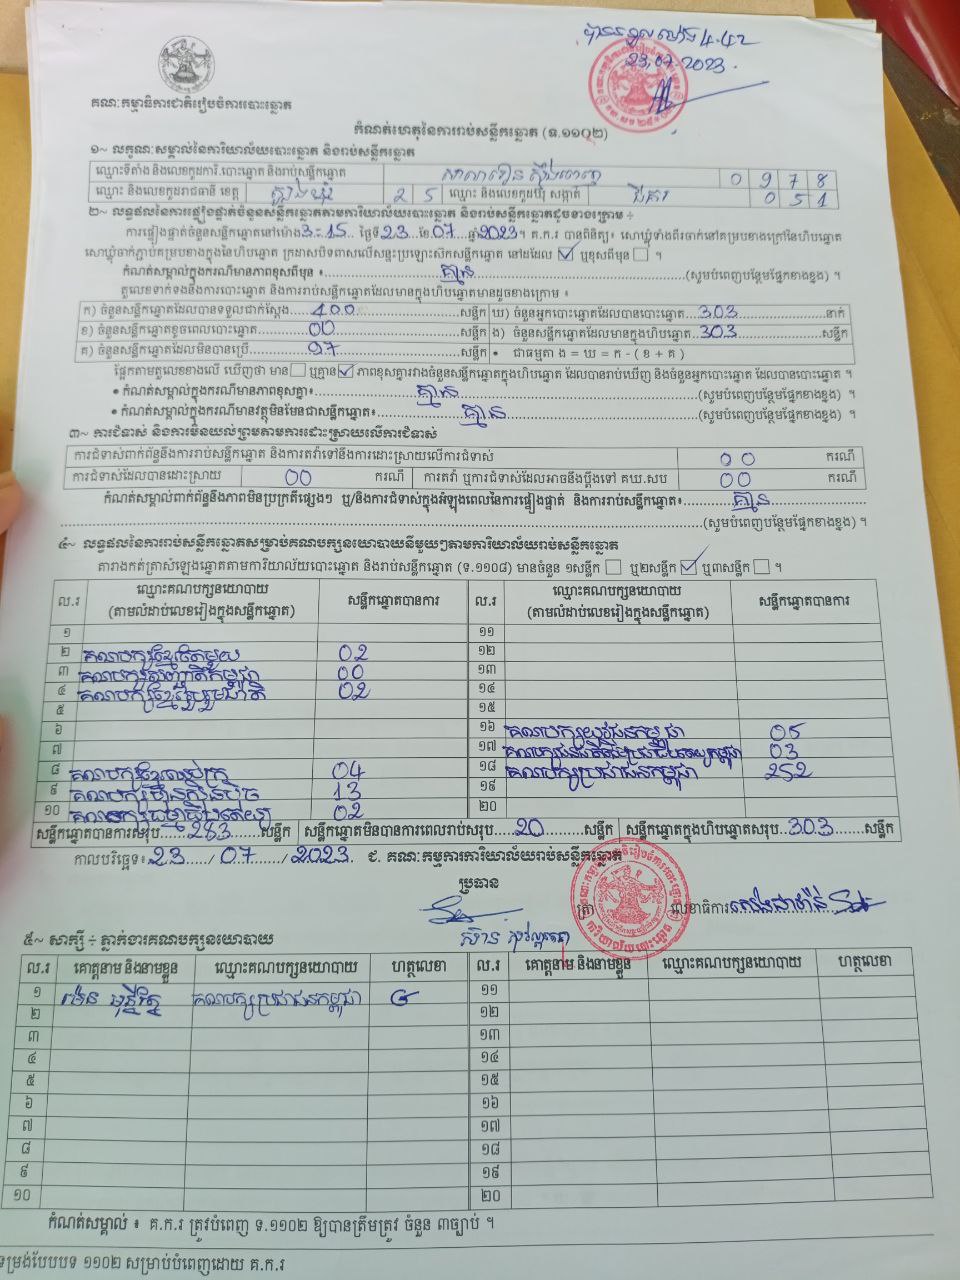 បានទទួលម៉ោង 4.42
23,07.2023.
គណៈកម្មាធិការជាតិរៀបចំការបោះឆ្នោត
កំណត់ហេតុនៃការរាប់សន្លឹកឆ្នោត (ទ.១១០២)
១~ លក្ខណៈសម្គាល់នៃការិយាល័យបោះឆ្នោត និងរាប់សន្លឹកឆ្នោត
ឈ្មោះទីតាំង និងលេខកូដការិ.បោះឆ្នោត និងរាប់សន្លឹកឆ្នោត 0 9 7 8
ឈ្មោះ និងលេខកូដរាជធានី ខេត្ត ត្បូងឃ្មុំ 2 5 ឈ្មោះ និងលេខកូដឃុំ សង្កាត់ 0 5 1
២~ លទ្ធផលនៃការផ្ទៀងផ្ទាត់ចំនួនសន្លឹកឆ្នោតតាមការិយាល័យបោះឆ្នោត និងរាប់សន្លឹកឆ្នោតដូចខាងក្រោម ÷
ការផ្ទៀងផ្ទាត់ចំនួនសន្លឹកឆ្នោតនៅម៉ោង 3-15 ថ្ងៃទី 23 ខែ 07 ឆ្នាំ 2023 ។ គ.ក.រ បានពិនិត្យ៖ សោឃ្លុំទាំងពីរចាក់នៅគម្របខាងក្រៅនៃហិបឆ្នោត
សោឃ្លុំចាក់ភ្ជាប់គម្របខាងក្នុងនៃហិបឆ្នោត ក្រដាសបិទពាសលើសន្ទះប្រឡោះស៊កសន្លឹកឆ្នោត នៅដដែល ✓ ឬខុសពីមុន ។
កំណត់សម្គាល់ក្នុងករណីមានភាពខុសពីមុន ៖ គ្មាន (សូមបំពេញបន្ថែមផ្នែកខាងខ្នង) ។
តួលេខទាក់ទងនឹងការបោះឆ្នោត និងការរាប់សន្លឹកឆ្នោតដែលមានក្នុងហិបឆ្នោតមានដូចខាងក្រោម ៖
ក) ចំនួនសន្លឹកឆ្នោតដែលបានទទួលជាក់ស្តែង 400 សន្លឹក ឃ) ចំនួនអ្នកបោះឆ្នោតដែលបានបោះឆ្នោត 303 នាក់
ខ) ចំនួនសន្លឹកឆ្នោតខូចពេលបោះឆ្នោត 00 សន្លឹក ង) ចំនួនសន្លឹកឆ្នោតដែលមានក្នុងហិបឆ្នោត 303 សន្លឹក
គ) ចំនួនសន្លឹកឆ្នោតដែលមិនបានប្រើ 97 សន្លឹក • ជាធម្មតា ង = ឃ = ក - ( ខ + គ )
ផ្អែកតាមតួលេខខាងលើ ឃើញថា មាន ឬគ្មាន ✓ ភាពខុសគ្នារវាងចំនួនសន្លឹកឆ្នោតក្នុងហិបឆ្នោត ដែលបានរាប់ឃើញ និងចំនួនអ្នកបោះឆ្នោត ដែលបានបោះឆ្នោត ។
• កំណត់សម្គាល់ក្នុងករណីមានភាពខុសគ្នា៖ គ្មាន (សូមបំពេញបន្ថែមផ្នែកខាងខ្នង) ។
• កំណត់សម្គាល់ក្នុងករណីមានវត្ថុមិនមែនជាសន្លឹកឆ្នោត៖ គ្មាន (សូមបំពេញបន្ថែមផ្នែកខាងខ្នង) ។
៣~ ការជំទាស់ និងការមិនយល់ព្រមតាមការដោះស្រាយលើការជំទាស់
ការជំទាស់ពាក់ព័ន្ធនឹងការរាប់សន្លឹកឆ្នោត និងការតវ៉ាទៅនឹងការដោះស្រាយលើការជំទាស់ 00 ករណី
ការជំទាស់ដែលបានដោះស្រាយ 00 ករណី ការតវ៉ា ឬការជំទាស់ដែលអាចនឹងប្តឹងទៅ គឃ.សប 00 ករណី
កំណត់សម្គាល់ពាក់ព័ន្ធនឹងភាពមិនប្រក្រតីផ្សេងៗ ឬ/និងការជំទាស់ក្នុងអំឡុងពេលនៃការផ្ទៀងផ្ទាត់ និងការរាប់សន្លឹកឆ្នោត៖ គ្មាន
(សូមបំពេញបន្ថែមផ្នែកខាងខ្នង) ។
៤~ លទ្ធផលនៃការរាប់សន្លឹកឆ្នោតសម្រាប់គណបក្សនយោបាយនីមួយៗតាមការិយាល័យរាប់សន្លឹកឆ្នោត
តារាងកត់ត្រាសំឡេងឆ្នោតតាមការិយាល័យបោះឆ្នោត និងរាប់សន្លឹកឆ្នោត (ទ.១១០៨) មានចំនួន ១សន្លឹក ឬ២សន្លឹក ✓ ឬ៣សន្លឹក ។
ល.រ ឈ្មោះគណបក្សនយោបាយ (តាមលំដាប់លេខរៀងក្នុងសន្លឹកឆ្នោត) សន្លឹកឆ្នោតបានការ ល.រ ឈ្មោះគណបក្សនយោបាយ (តាមលំដាប់លេខរៀងក្នុងសន្លឹកឆ្នោត) សន្លឹកឆ្នោតបានការ
១ ១១
២ គណបក្សខ្មែរតែមួយ 02 ១២
៣ គណបក្សសញ្ជាតិកម្ពុជា 00 ១៣
៤ គណបក្សខ្មែររួបរួមជាតិ 02 ១៤
៥ ១៥
៦ ១៦ គណបក្សយុវជនកម្ពុជា 05
៧ ១៧ 03
៨ គណបក្សខ្មែរឈប់ក្រ 04 ១៨ គណបក្សប្រជាជនកម្ពុជា 252
៩ គណបក្សហ៊្វុនស៊ិនប៉ិច 13 ១៩
១០ គណបក្សធម្មាធិបតេយ្យ 02 ២០
សន្លឹកឆ្នោតបានការសរុប 283 សន្លឹក សន្លឹកឆ្នោតមិនបានការពេលរាប់សរុប 20 សន្លឹក សន្លឹកឆ្នោតក្នុងហិបឆ្នោតសរុប 303 សន្លឹក
កាលបរិច្ឆេទ៖ 23 / 07 / 2023 ជ. គណៈកម្មការការិយាល័យរាប់សន្លឹកឆ្នោត
ប្រធាន
ត្រា លេខាធិការ
៥~ សាក្សី ÷ ភ្នាក់ងារគណបក្សនយោបាយ
ល.រ គោត្តនាម និងនាមខ្លួន ឈ្មោះគណបក្សនយោបាយ ហត្ថលេខា ល.រ គោត្តនាម និងនាមខ្លួន ឈ្មោះគណបក្សនយោបាយ ហត្ថលេខា
១ គណបក្សប្រជាជនកម្ពុជា ១១
២ ១២
៣ ១៣
៤ ១៤
៥ ១៥
៦ ១៦
៧ ១៧
៨ ១៨
៩ ១៩
១០ ២០
កំណត់សម្គាល់ ៖ គ.ក.រ ត្រូវបំពេញ ទ.១១០២ ឱ្យបានត្រឹមត្រូវ ចំនួន ៣ច្បាប់ ។
ទម្រង់បែបបទ ១១០២ សម្រាប់បំពេញដោយ គ.ក.រ